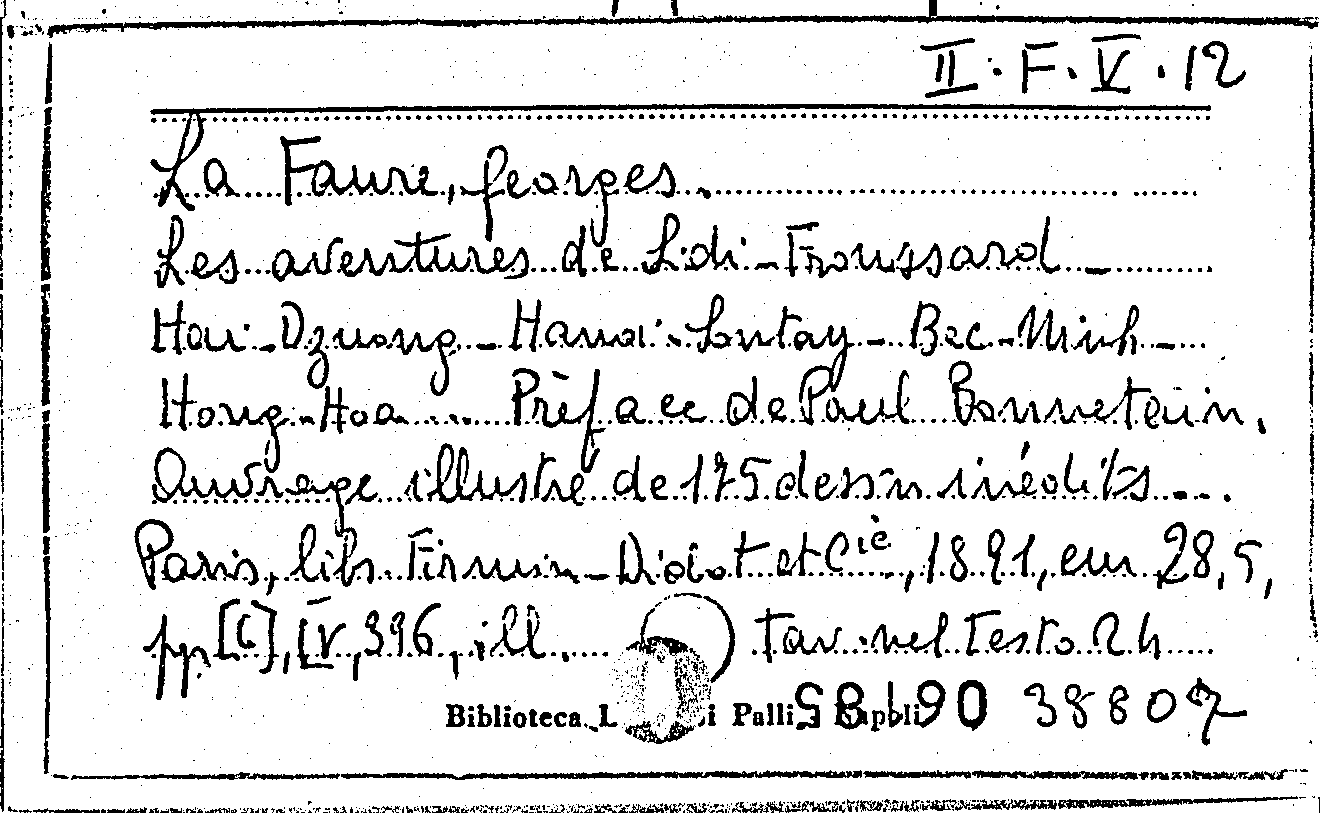 II. F. V. 12
La Faure, Georges.
Les aventures de Sidi-Froussard -
Hai-Dzuong - Hanoi - Sontay - Bac-Ninh -
Hong-Hoa .... Préface de Paul Bonnetain.
Ouvrage illustré de 175 dessin inédits ...
Paris, lib. Firmin-Didot et Cie, 1891, cm 28,5,
pp. [6], IV, 396, ill. tav. nel testo 24
Biblioteca L i Palli Napoli 90 38807